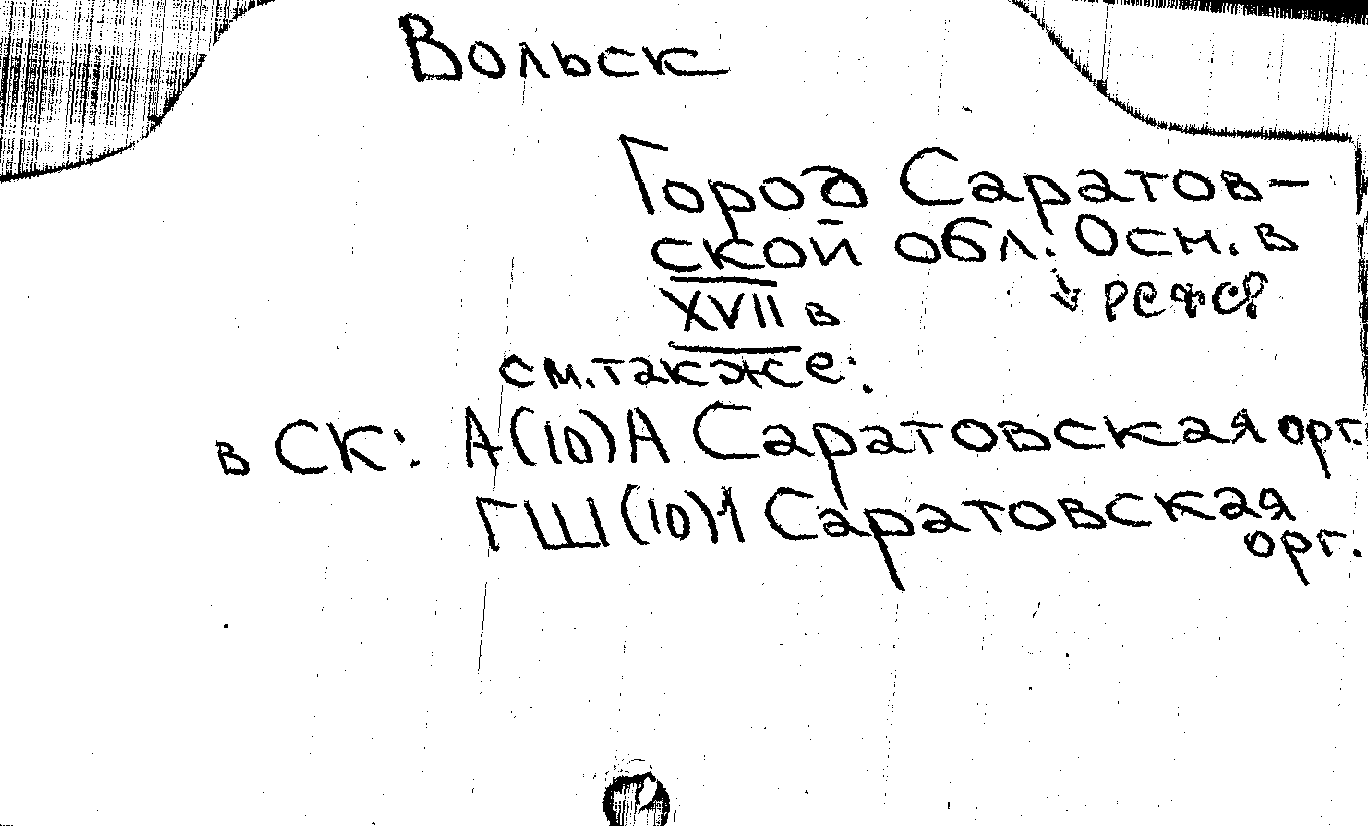 Вольск
Город Саратов-
ской обл. Осн. в
РСФСР
XVII в
см. также:
в СК: А(10)А Саратовская орг.
ГШ(10)1 Саратовская
орг.